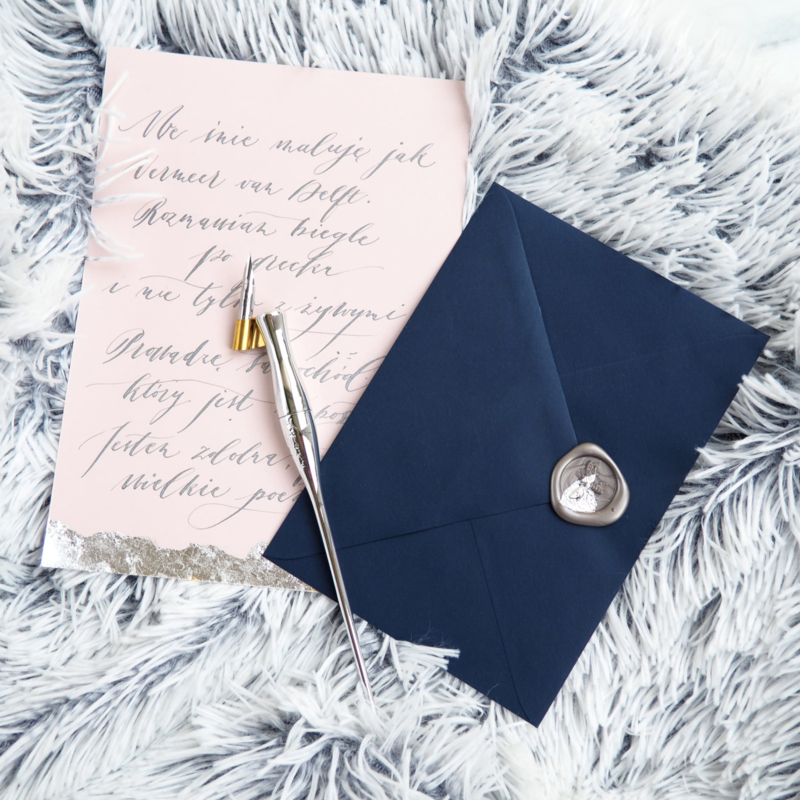 We śnie maluję jak
Vermeer van Delft.
Rozmawiam biegle
po grecku
i nie tylko z żywymi
Prowadzę samochód
który jest
Jestem zdolna,
wielkie poe